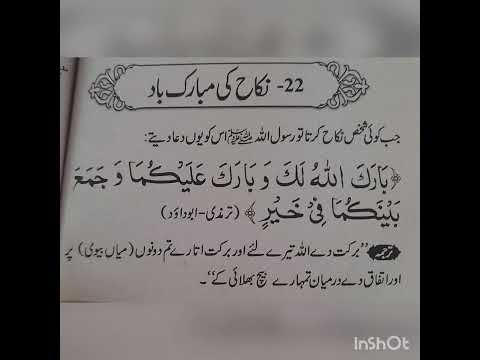 22- نکاح کی مبارک باد
جب کوئی شخص نکاح کرتا تو رسول اللہ ﷺ اس کو یوں دعا دیتے:
﴿بَارَكَ اللّٰهُ لَكَ وَ بَارَكَ عَلَيْكُمَا وَ جَمَعَ
بَيْنَكُمَا فِيْ خَيْرٍ﴾ (ترمذی-ابوداؤد)
ترجمہ ’’برکت دے اللہ تیرے لئے اور برکت اتارے تم دونوں (میاں بیوی) پر
اور اتفاق دے درمیان تمہارے بیچ بھلائی کے‘‘۔
InShOt